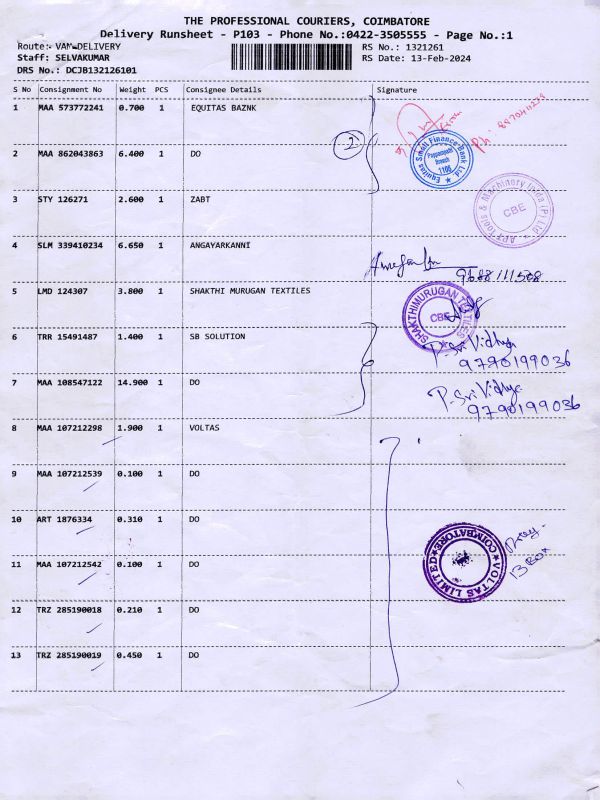 THE PROFESSIONAL COURIERS, COIMBATORE
Delivery Runsheet - P103 - Phone No.:0422-3505555 - Page No.:1
Route:- VAM-DELIVERY RS No.: 1321261
Staff: SELVAKUMAR RS Date: 13-Feb-2024
DRS No.: DCJB132126101
S No Consignment No Weight PCS Consignee Details Signature
1 MAA 573772241 0.700 1 EQUITAS BAZNK
2
Equitas Small Finance Bank Ltd
Branch
1106
2 MAA 862043863 6.400 1 DO
3 STY 126271 2.600 1 ZABT
APT Tools & Machinery India (P) Ltd
CBE
4 SLM 339410234 6.650 1 ANGAYARKANNI
9688111508
5 LMD 124307 3.800 1 SHAKTHI MURUGAN TEXTILES
SHAKTHIMURUGAN TEXTILES
CBE
6 TRR 15491487 1.400 1 SB SOLUTION
P. Sri Vidhya
9790199036
7 MAA 108547122 14.900 1 DO
P. Sri Vidhya
9790199036
8 MAA 107212298 1.900 1 VOLTAS
9 MAA 107212539 0.100 1 DO
10 ART 1876334 0.310 1 DO
VOLTAS LIMITED
COIMBATORE
13 Box
11 MAA 107212542 0.100 1 DO
12 TRZ 285190018 0.210 1 DO
13 TRZ 285190019 0.450 1 DO